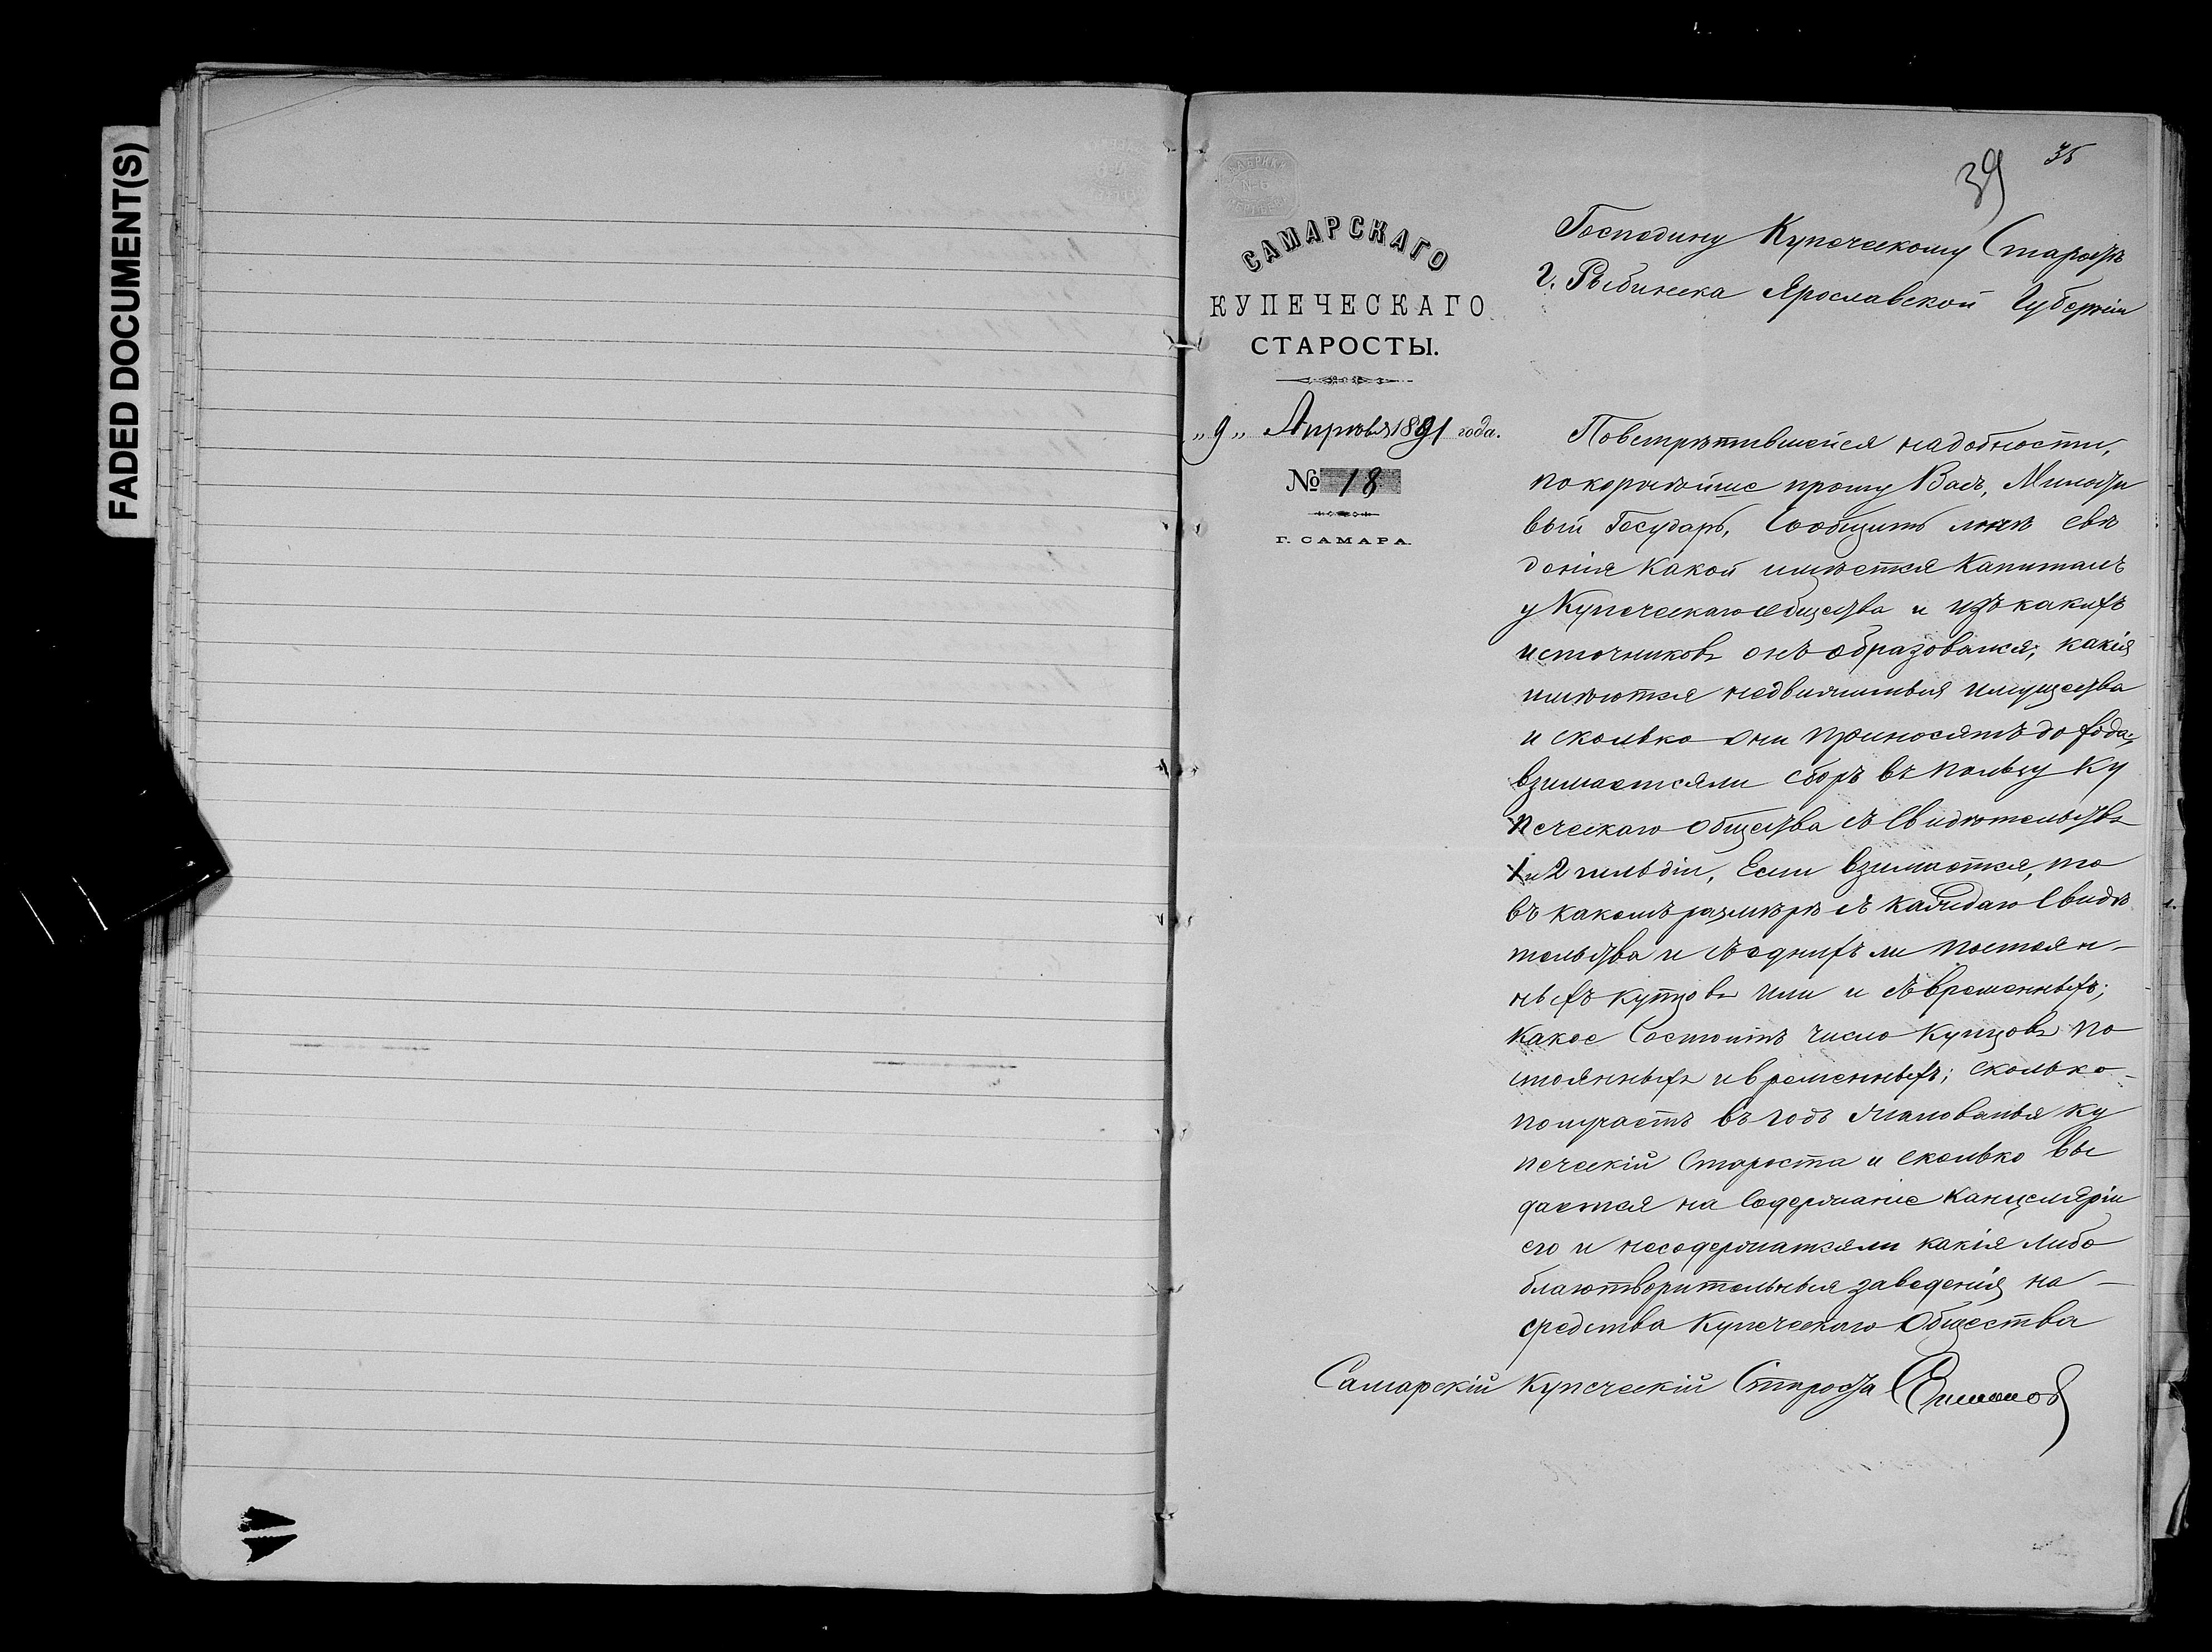 FADED DOCUMENT(S)
35
39
САМАРСКАГО
КУПЕЧЕСКАГО
СТАРОСТЫ.
„9„ Апрѣля 1891 года.
№ 18
Г. САМАРА.
Господину Купеческому Старостѣ
г. Рыбинска Ярославской Губерніи
Повстрѣтившейся надобности,
покорнѣйше прошу Васъ, Милости
вый Государь, Сообщить мнѣ свѣ
денія какой имѣется Капиталъ
у Купеческаго общества и изъ какихъ
источниковъ онъ образовался; какія
имѣются недвижимыя имущества
и сколько они приносятъ дохода;
взимается ли сборъ въ пользу Ку
печескаго Общества съ Свидѣтельствъ
1 и 2 гильдіи, Если взимается, то
въ какомъ размѣрѣ съ каждаго Свидѣ
тельства и съ однихъ ли постоян-
ныхъ купцовъ Или и съ временныхъ;
Какое Состоитъ число Купцовъ по
стоянныхъ и временныхъ; сколько-
получаетъ въ годъ жалованья Ку
печескій Староста и сколько вы
дается на Содержаніе Канцеляріи
его и несодержатся ли какія либо
благотворительныя заведенія на-
средства Купеческаго Общества
Самарскій Купеческій Староста